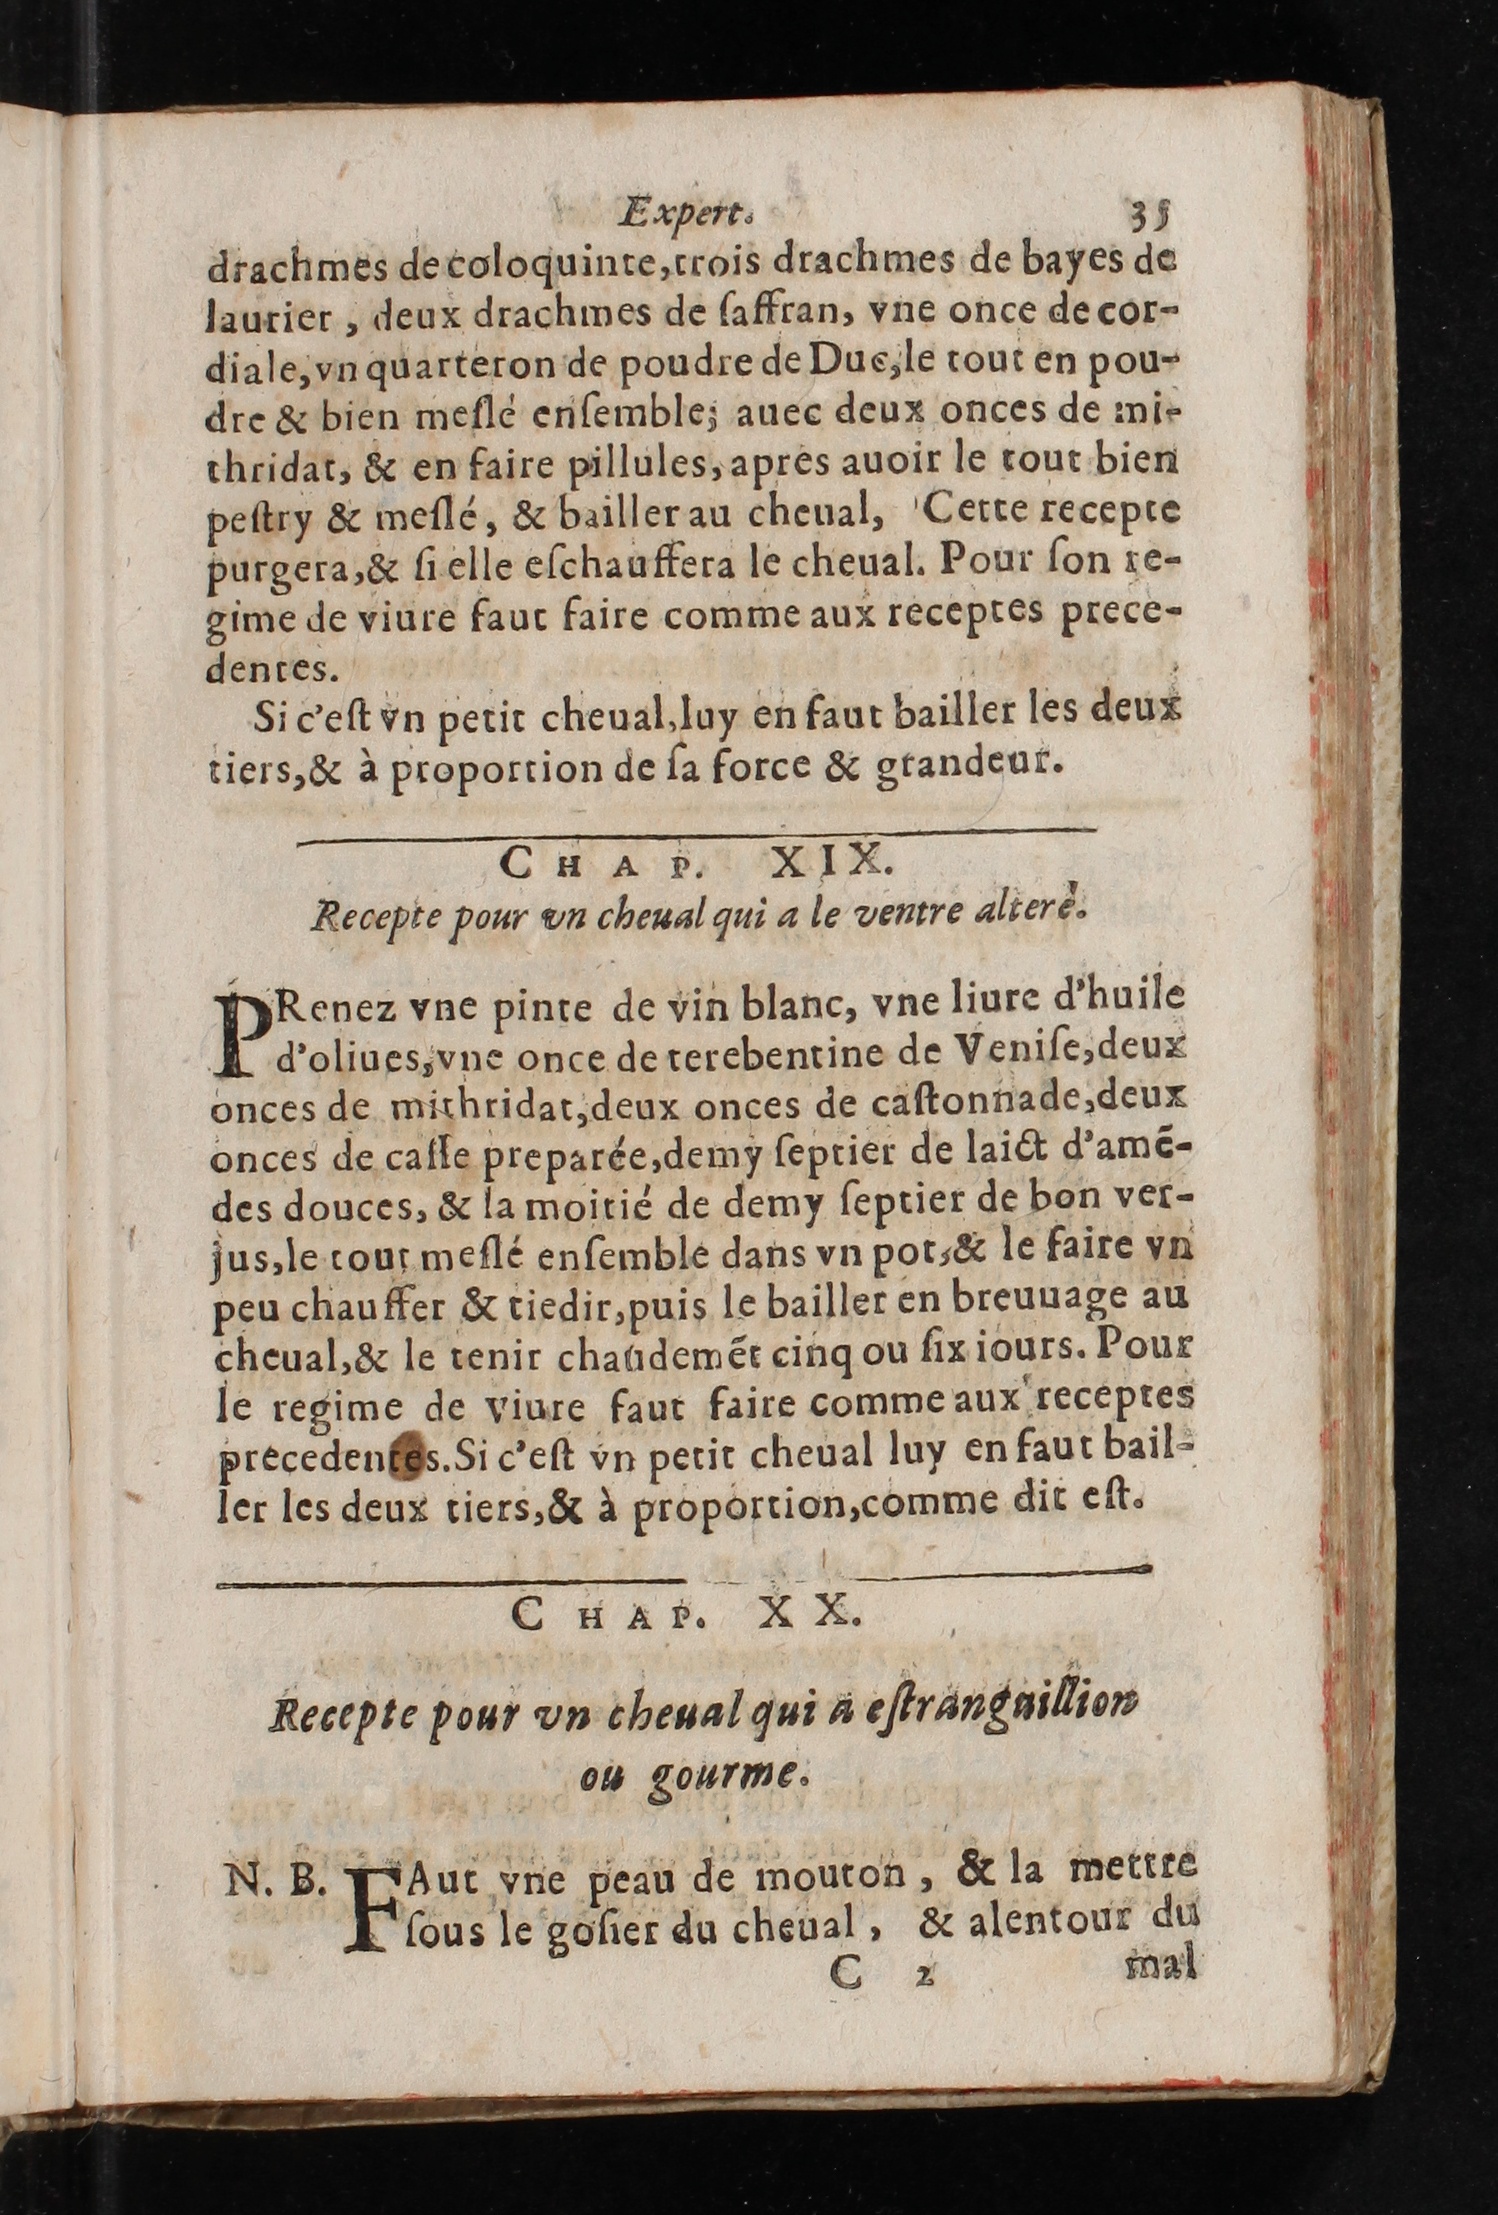 Expert. 35
drachmes de coloquinte, trois drachmes de bayes de
laurier, deux drachmes de ſaffran, vne once de cor-
diale, vn quarteron de poudre de Duc, le tout en pou-
dre & bien meſlé enſemble; auec deux onces de mi-
thridat, & en faire pillules, apres auoir le tout bien
peſtry & meſlé, & bailler au cheual, Cette recepte
purgera, & ſi elle eſchauffera le cheual. Pour ſon re-
gime de viure faut faire comme aux receptes prece-
dentes.
Si c'eſt vn petit cheual, luy en faut bailler les deux
tiers, & à proportion de ſa force & grandeur.
CHAP. XIX.
Recepte pour vn cheual qui a le ventre alteré.
PRenez vne pinte de vin blanc, vne liure d'huile
d'oliues, vne once de terebentine de Veniſe, deux
onces de mithridat, deux onces de caſtonnade, deux
onces de caſſe preparée, demy ſeptier de laict d'amẽ-
des douces, & la moitié de demy ſeptier de bon ver-
jus, le tout meſlé enſemble dans vn pot, & le faire vn
peu chauffer & tiedir, puis le bailler en breuuage au
cheual, & le tenir chaudemẽt cinq ou ſix iours. Pour
le regime de viure faut faire comme aux receptes
precedentes. Si c'eſt vn petit cheual luy en faut bail-
ler les deux tiers, & à proportion, comme dit eſt.
CHAP. XX.
Recepte pour vn cheual qui a eſtranguillion
ou gourme.
N. B. FAut vne peau de mouton, & la mettre
ſous le goſier du cheual, & alentour du
C 2 mal